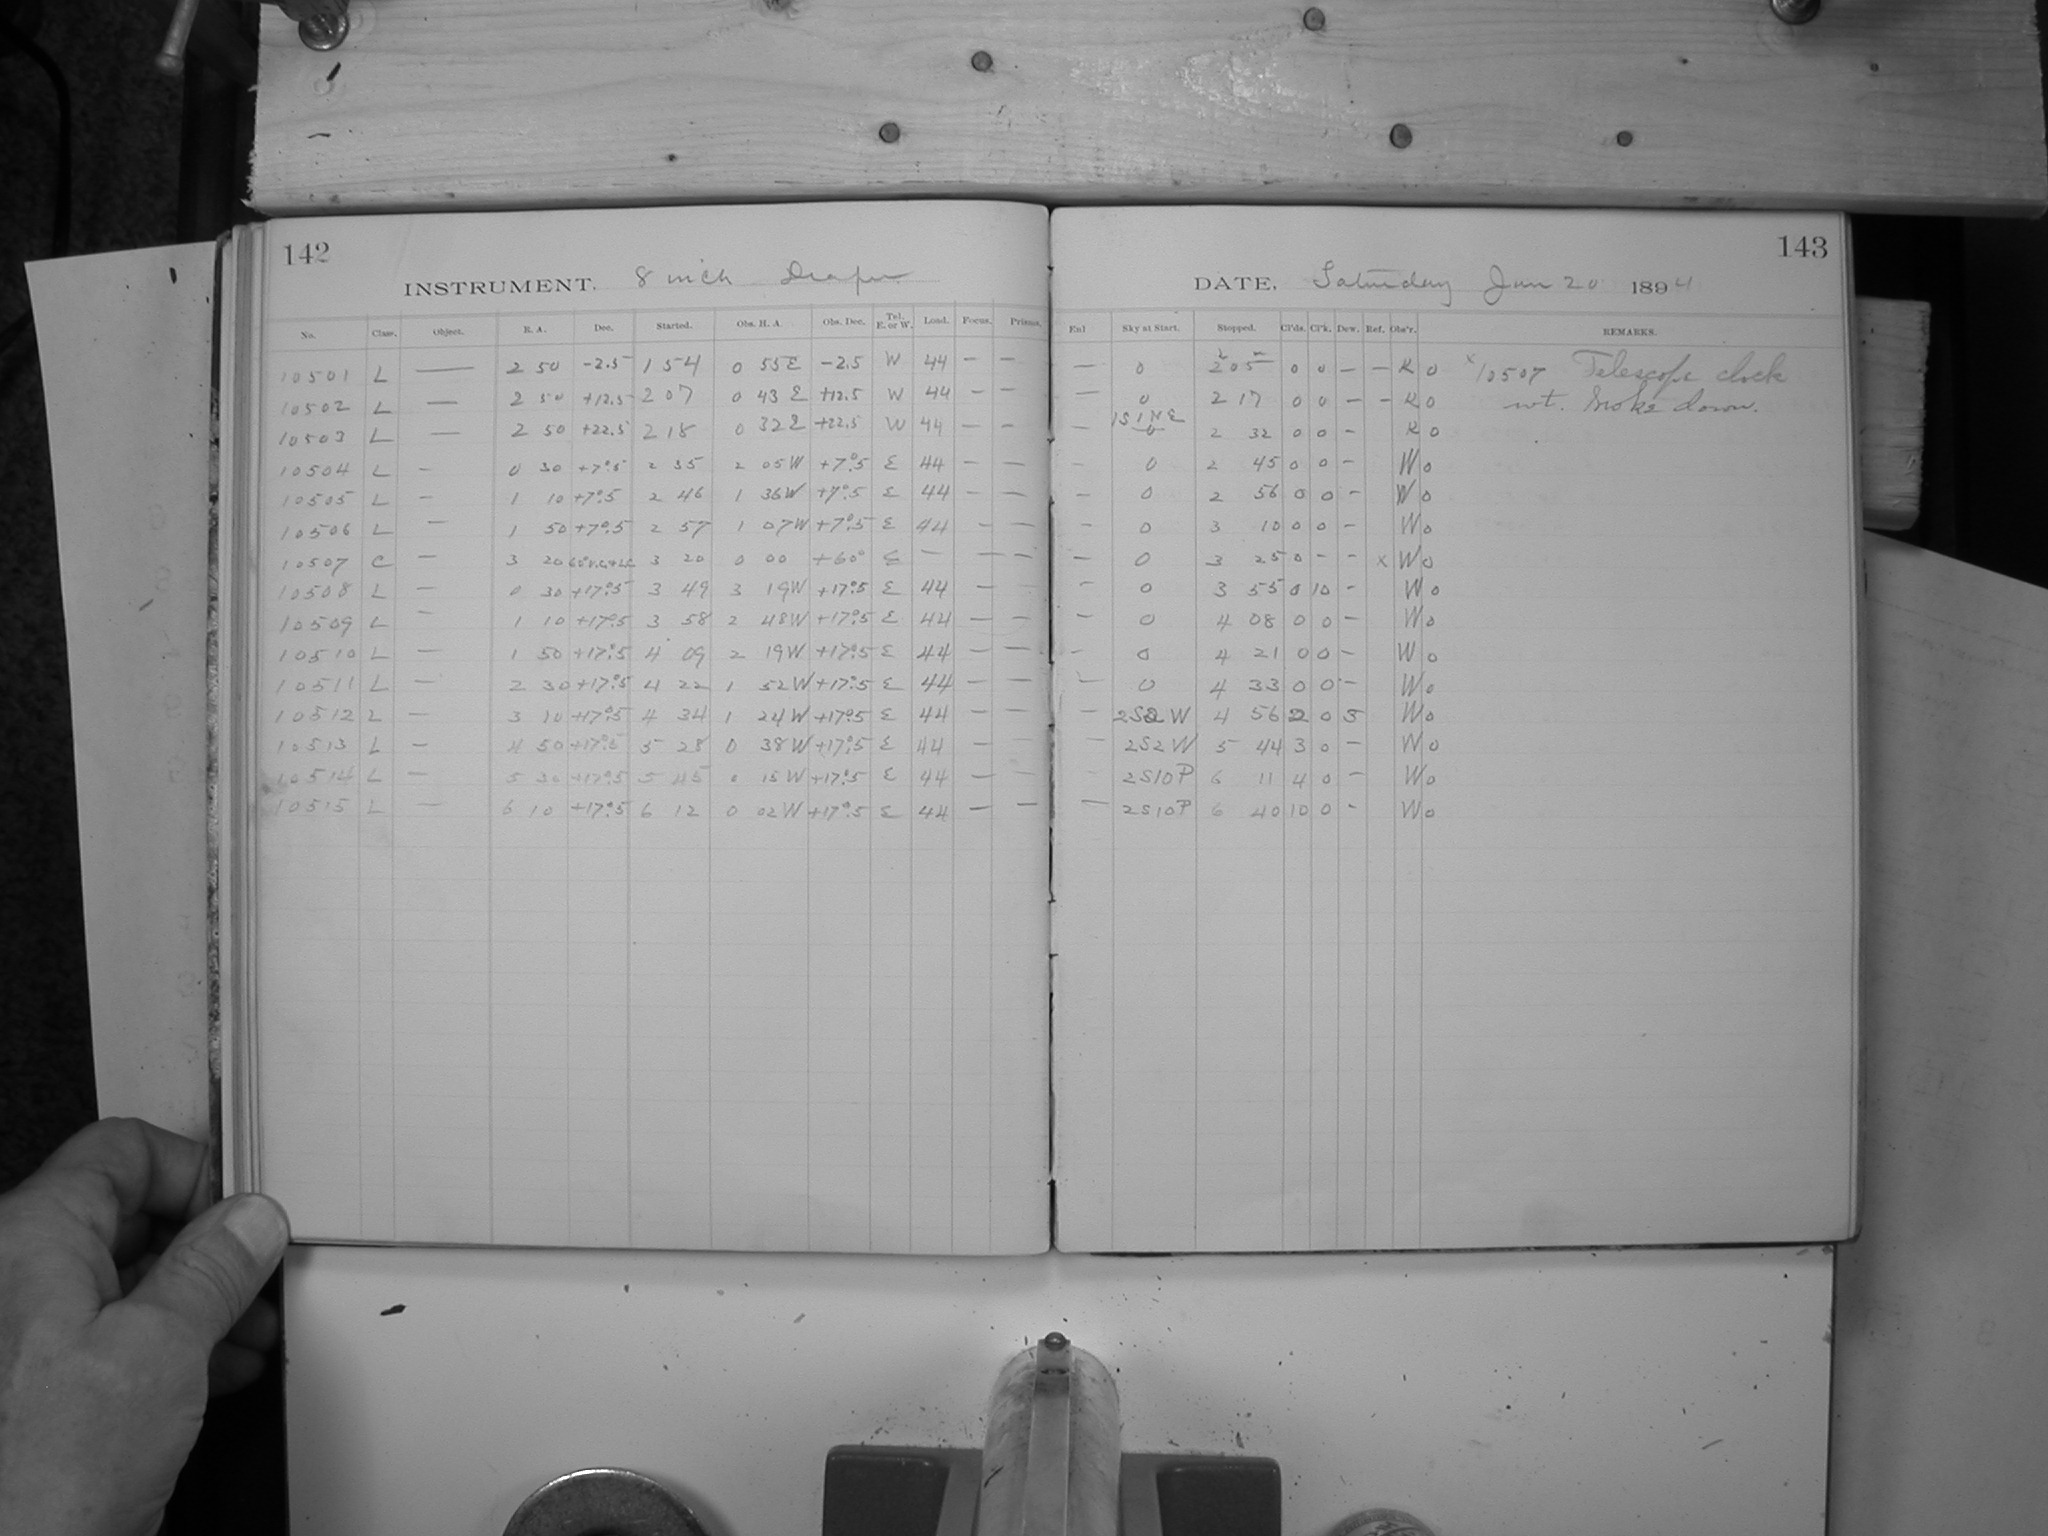 142
INSTRUMENT. 8 inch Draper
No. Class. Object. R. A. Dec. Started. Obs. H. A. Obs. Dec. Tel. E. or W. Lond. Focus. Prisms.
10501 L — 2 50 -2.5 1 54 0 55 E -2.5 W 44 — —
10502 L — 2 50 +12.5 2 07 0 43 E +12.5 W 44 — —
10503 L — 2 50 +22.5 2 18 0 32 E +22.5 W 44 — —
10504 L — 0 30 +7°.5 2 35 2 05 W +7°.5 E 44 — —
10505 L — 1 10 +7°.5 2 46 1 36 W +7°.5 E 44 — —
10506 L — 1 50 +7°.5 2 57 1 07 W +7°.5 E 44 — —
10507 C — 3 20 3 20 0 00 +60° E — — —
10508 L — 0 30 +17°.5 3 49 3 19 W +17°.5 E 44 — —
10509 L — 1 10 +17°.5 3 58 2 48 W +17°.5 E 44 — —
10510 L — 1 50 +17°.5 4 09 2 19 W +17°.5 E 44 — —
10511 L — 2 30 +17°.5 4 22 1 52 W +17°.5 E 44 — —
10512 L — 3 10 +17°.5 4 34 1 24 W +17°.5 E 44 — —
10513 L — 4 50 +17°.5 5 28 0 38 W +17°.5 E 44 — —
10514 L — 5 30 +17°.5 5 45 0 15 W +17°.5 E 44 — —
10515 L — 6 10 +17°.5 6 12 0 02 W +17°.5 E 44 — —
143
DATE, Saturday Jan 20 1894
Enl Sky at Start. Stopped. Cl'ds. Cl'k. Dew. Ref. Obs'r. REMARKS.
— 0 2 05 0 0 — — K 0 x 10507 Telescope clock
— 0 2 17 0 0 — — K 0 wt. broke down.
— 1S1NE 0 2 32 0 0 — K 0
— 0 2 45 0 0 — W 0
— 0 2 56 0 0 — W 0
— 0 3 10 0 0 — W 0
— 0 3 25 0 — — x W 0
— 0 3 55 0 10 — W 0
— 0 4 08 0 0 — W 0
— 0 4 21 0 0 — W 0
— 0 4 33 0 0 — W 0
— 2S2W 4 56 2 0 5 W 0
— 2S2W 5 44 3 0 — W 0
— 2S10P 6 11 4 0 — W 0
— 2S10P 6 40 10 0 — W 0